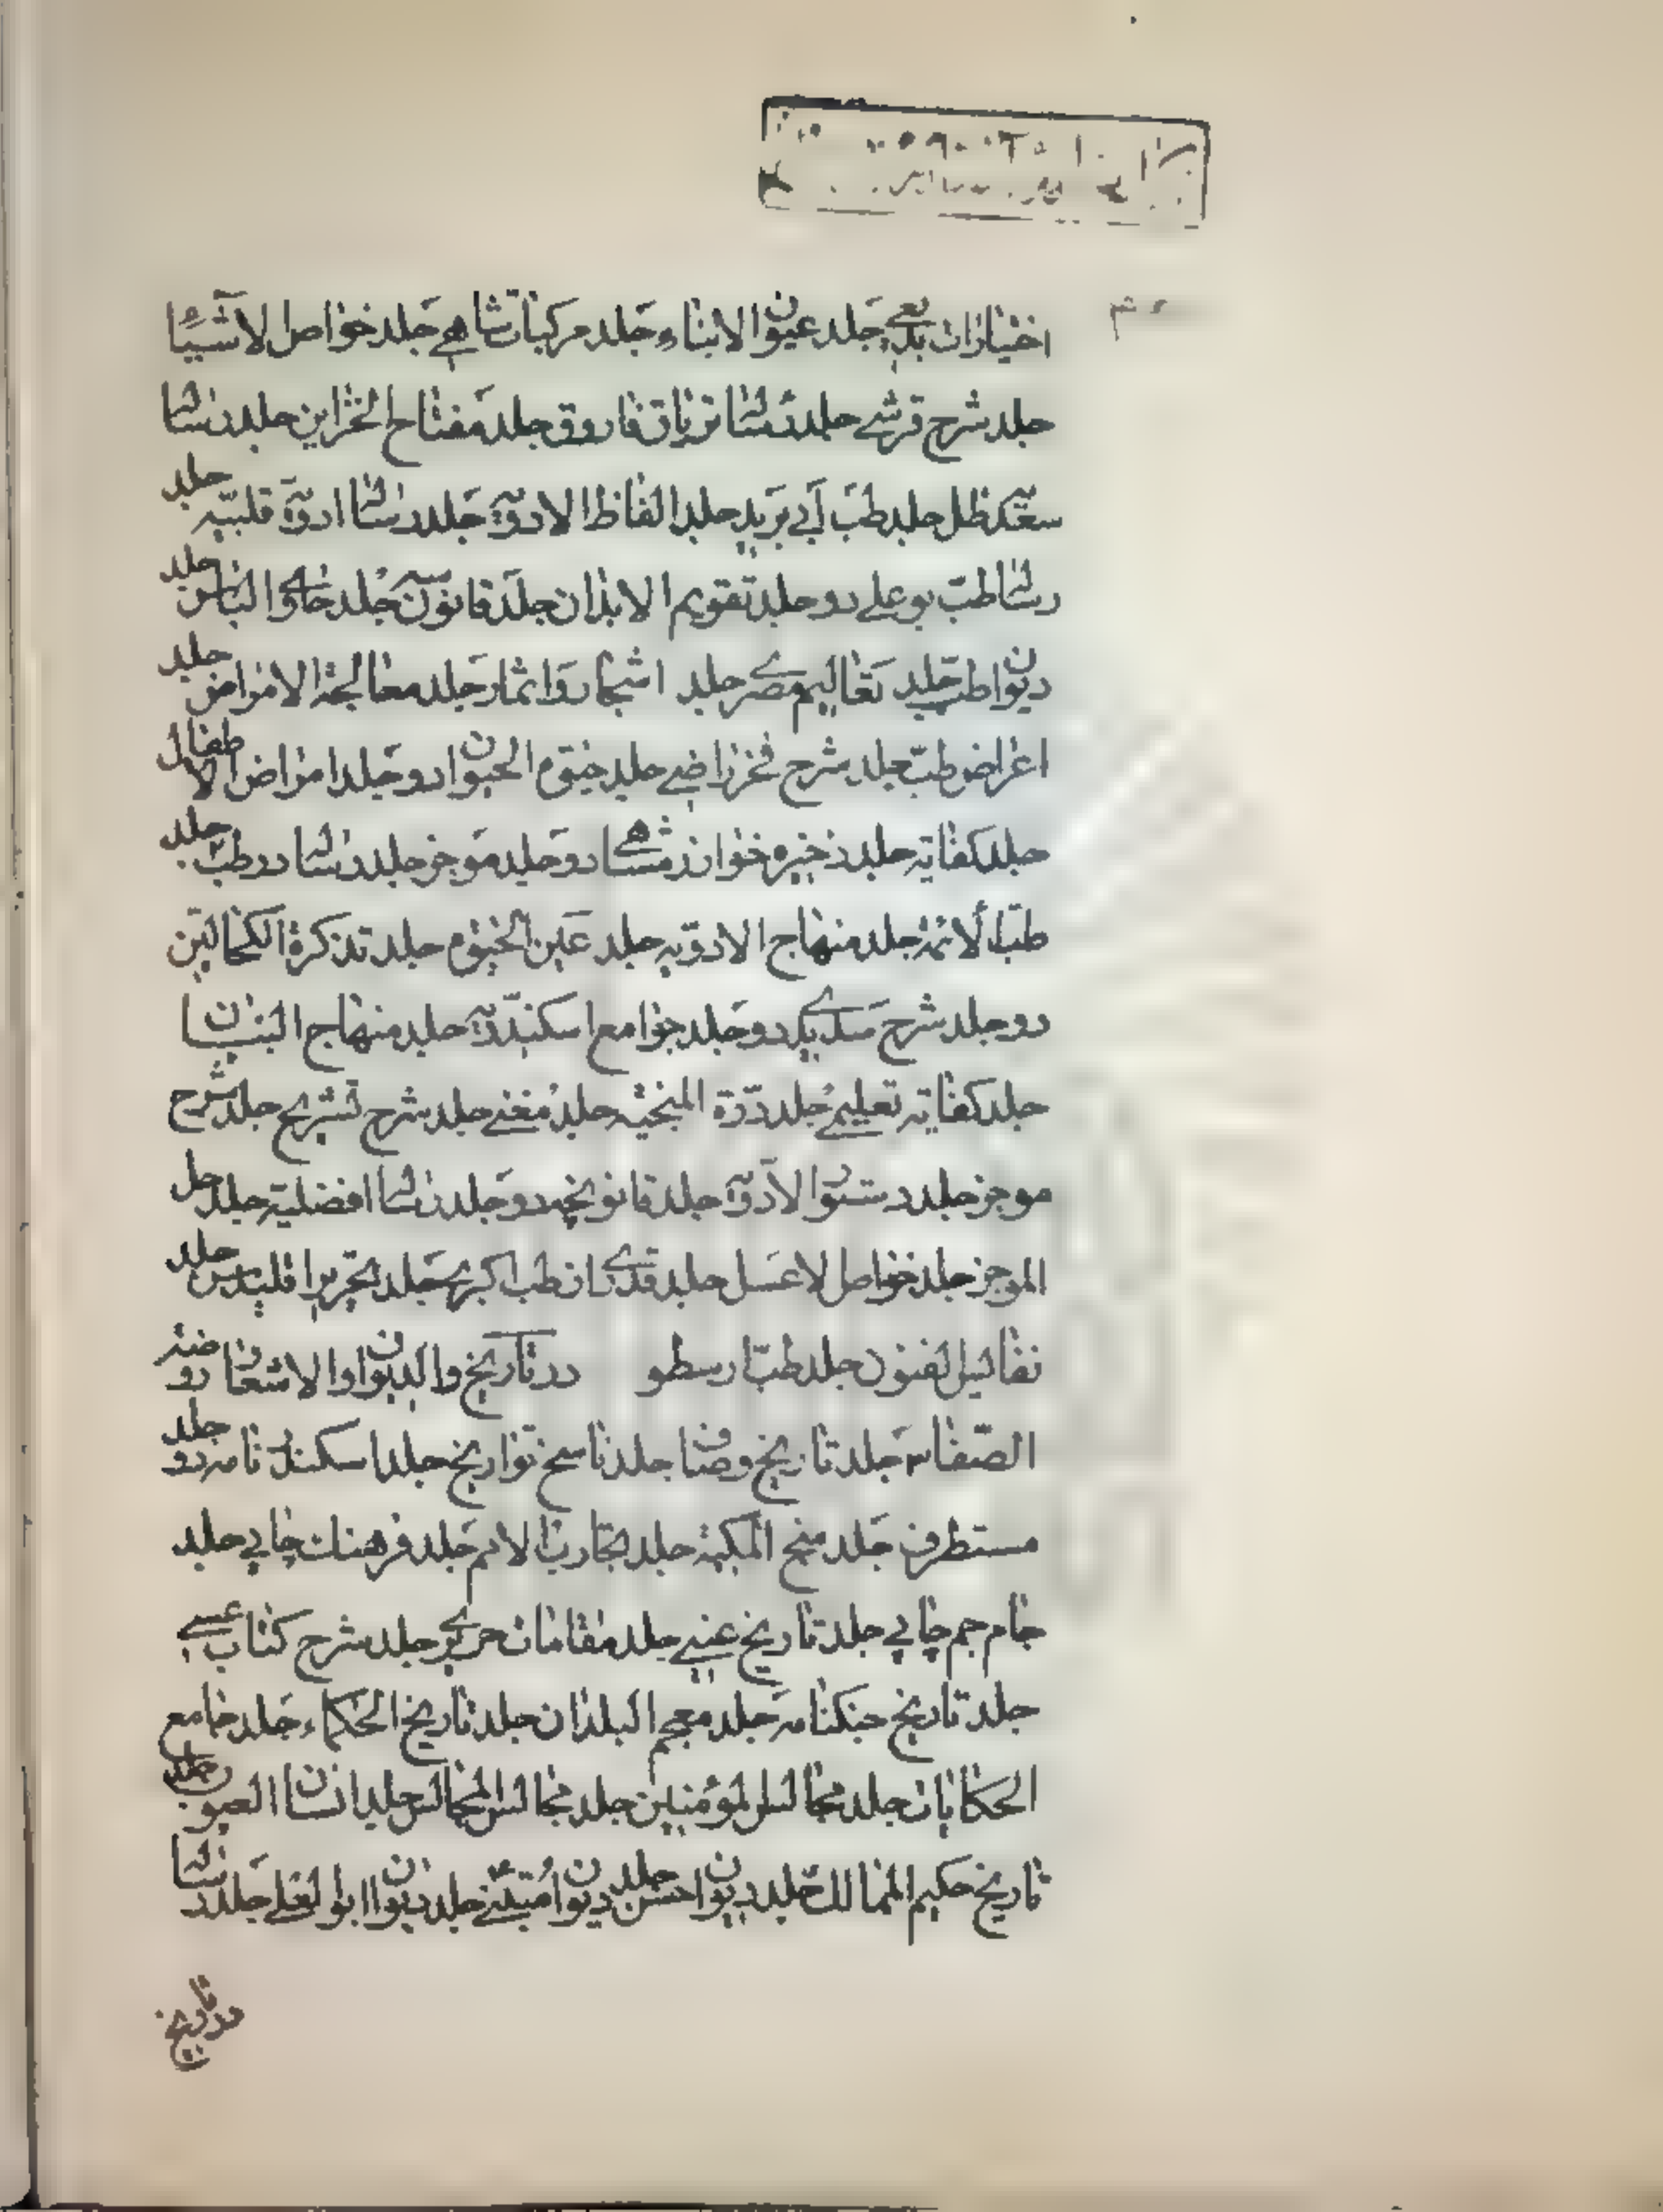 اختیارات بدیعی جلد عیون الانباء جلد مرکبات شاهی جلد خواص الاشیاء
جلد شرح قرشی جلد رسالۀ تریاق فاروق جلد مفتاح الخزاین جلد رسالۀ
جلد طب جلد الفاظ الادویه جلد رسالۀ ادویۀ قلبیه جلد
رسالۀ طب بوعلی دو جلد تقویم الابدان جلد قانون سه جلد جلد
دیوان طب جلد تعالیم مصری جلد اشجار و اثمار جلد معالجة الامراض جلد
اغراض طب جلد شرح فخر رازی جلد حیوة الحیوان دو جلد امراض الاطفال
جلد کفایه جلد ذخیره خوارزمشاهی دو جلد موجز جلد رسالۀ در طب جلد
طب الائمة جلد منهاج الادویه جلد عین الحیوة جلد تذکرة الکحالین
دو جلد شرح سدیدی دو جلد جوامع اسکندریه جلد منهاج البیان
جلد کفایه تعلیم جلد درة المنتخبه جلد مغنی جلد شرح تشریح جلد شرح
موجز جلد دستور الادویه جلد قانونچه دو جلد رسالۀ افضلیة جلد حل
الموجز جلد خواص جلد طب اکبری جلد تحریر اقلیدس جلد
نفائس الفنون جلد طب ارسطو در تاریخ و الدیوان و الاشعار روضة
الصفا ۳ جلد تاریخ وصاف جلد ناسخ تواریخ جلد اسکندر نامه دو جلد
مستطرف جلد منح المکیة جلد تجارب الامم جلد فرهنگ چاپی جلد
جام جم چاپی جلد تاریخ عتبی جلد مقامات حریری جلد شرح کتاب عتبی
جلد تاریخ جنکنامه جلد معجم البلدان جلد تاریخ الحکماء جلد جامع
الحکایات جلد مجالس المؤمنین جلد مجالس المجالس جلد انسان العیون جلد
تاریخ حکیم الممالک جلد دیوان حسن جلد دیوان متنبی جلد دیوان ابوالعلی جلد رسالۀ
در تاریخ